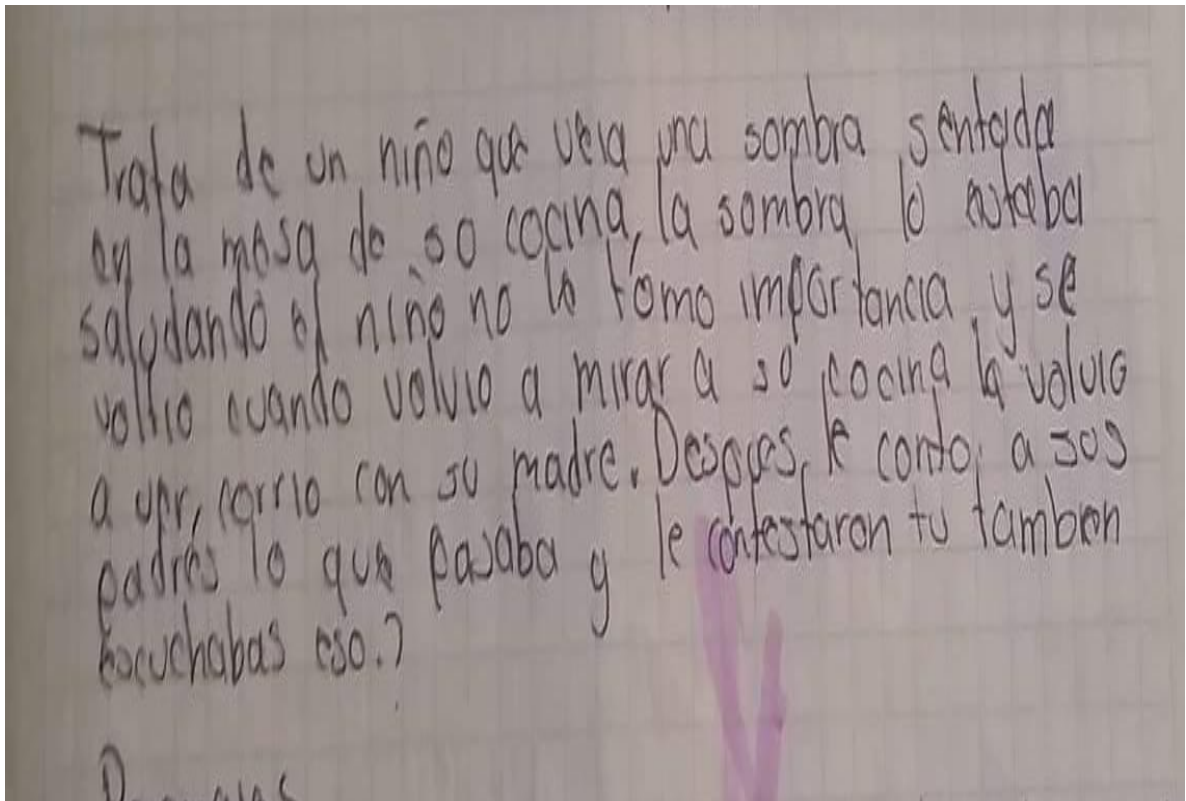 Trata de un niño que veia una sombra sentada
en la mesa de so cocina, la sombra lo estaba
saludando el niño no le tomo importancia y se
voltio cuando volvio a mirar a so cocina la volvio
a ver, corrio con su madre. Despues le conto a sos
padres lo que pasaba y le contestaron tu tambien
escuchabas eso.?